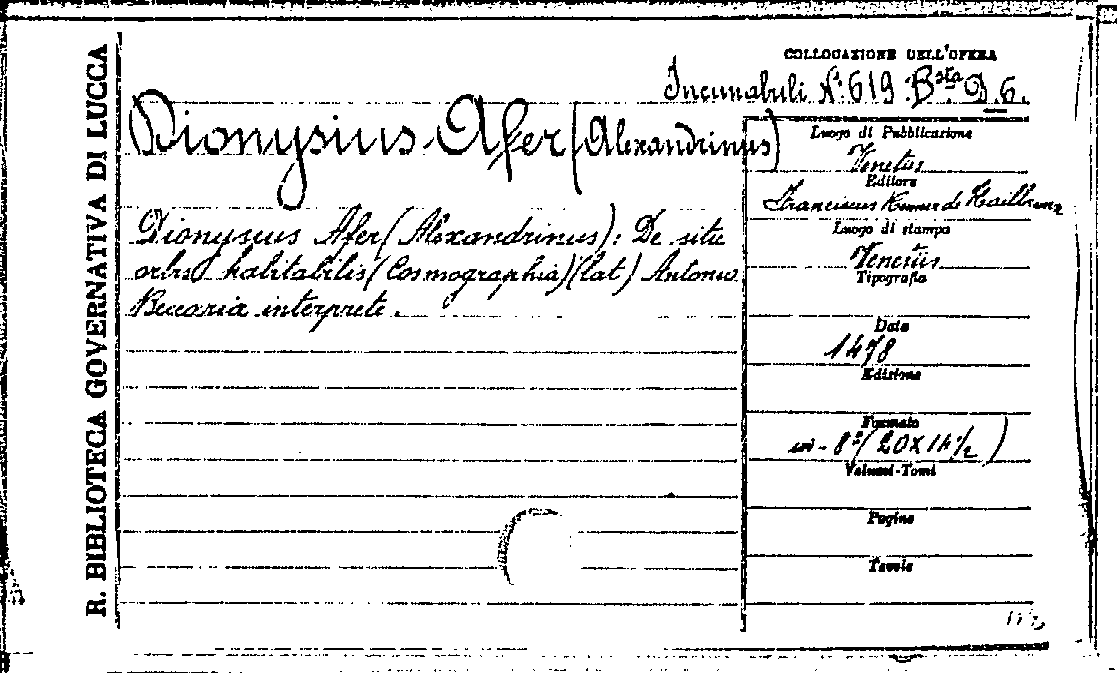 R. BIBLIOTECA GOVERNATIVA DI LUCCA
COLLOCAZIONE DELL'OPERA
Incunabuli N.º 619 B.sta D.6.
Dionysius Afer (Alexandrinus)
Dionysius Afer (Alexandrinus): De situ
orbis habitabilis (Cosmographia) (lat) Antonio
Beccaria interprete.
Luogo di Pubblicazione
Venetiis
Editore
Franciscus Renner de Hailbrun
Luogo di stampa
Venetiis
Tipografia
Data
1478
Edizione
Formato
in-8º (20 x 14 1/2)
Volumi-Tomi
Pagine
Tavole